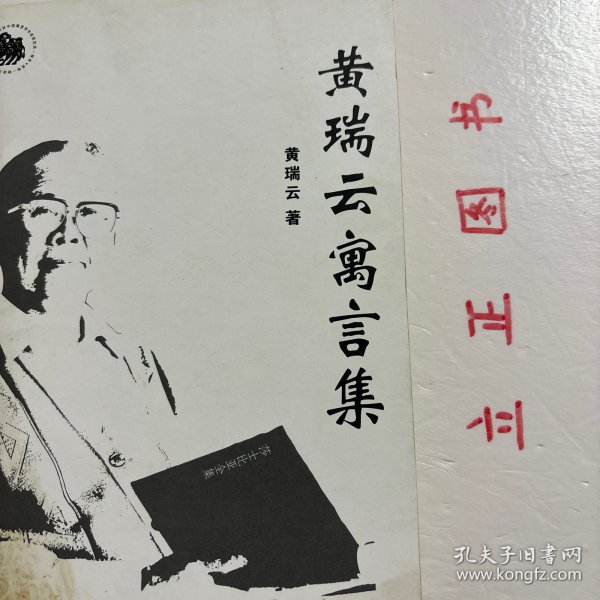 黄瑞云寓言集
黄瑞云 著
莎士比亚全集
立正图书
孔夫子旧书网
www.kongfz.com